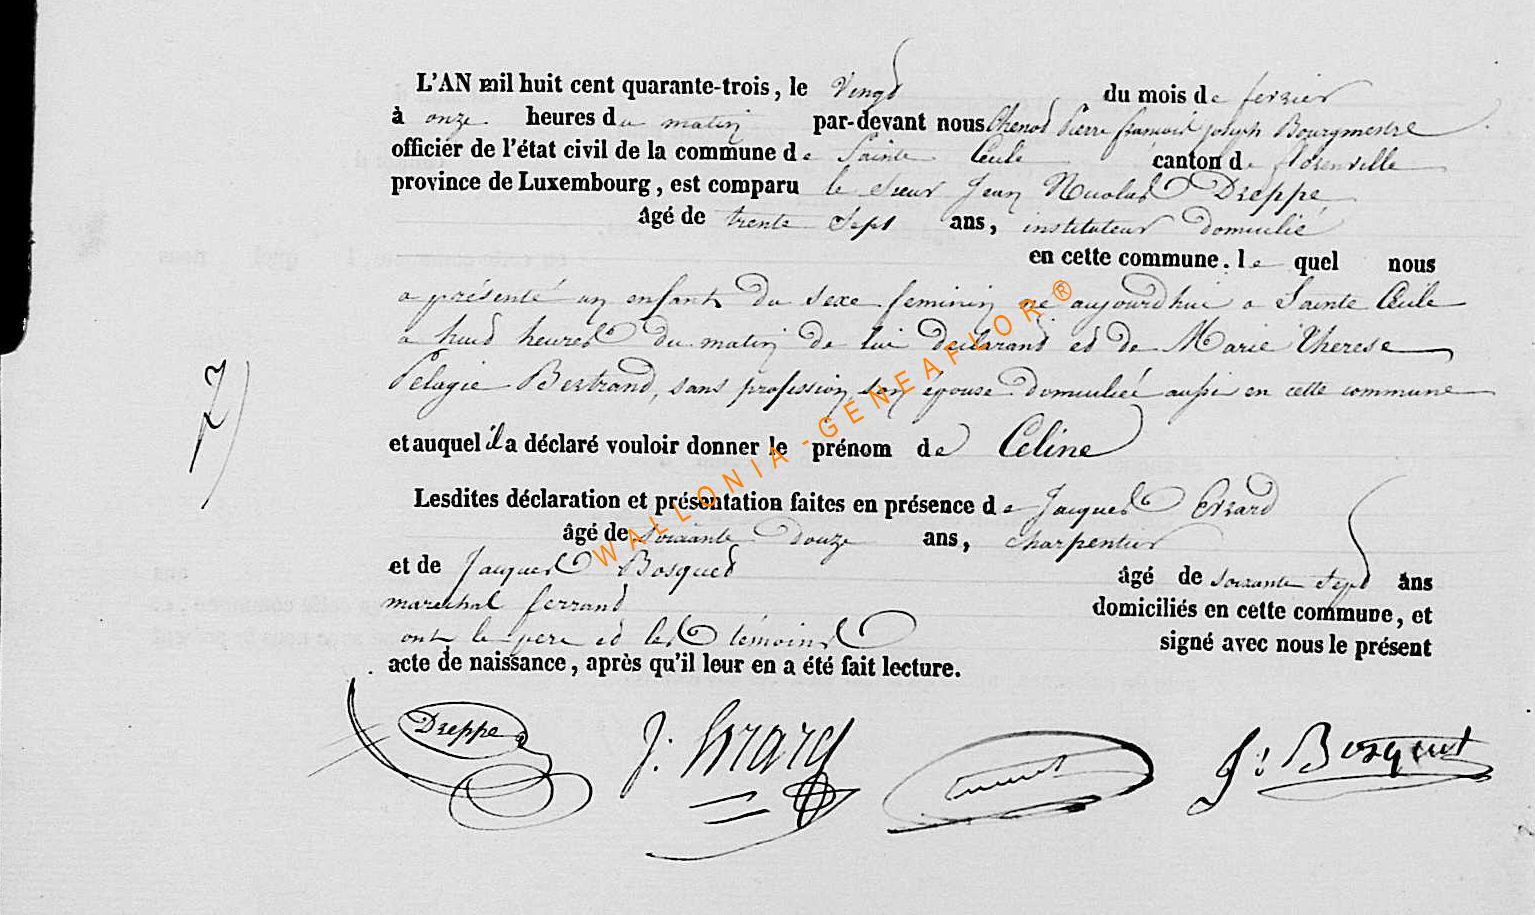 L'AN mil huit cent quarante-trois, le Vingt du mois de fevrier
à onze heures du matin par-devant nous Thenot Pierre françois joseph Bourgmestre
officier de l'état civil de la commune de Sainte Cecile canton de florenville
province de Luxembourg, est comparu le Sieur Jean Nicolas Dreppe
âgé de trente Sept ans, instituteur domicilié
en cette commune. le quel nous
a présenté un enfant du sexe feminin né aujourdhui a Sainte Cécile
a huit heures du matin de lui declarant et de Marie Therese
Pelagie Bertrand, sans profession, son épouse domiciliée aussi en cette commune
et auquel il a déclaré vouloir donner le prénom de Céline
7)
Lesdites déclaration et présentation faites en présence de Jacques Evrard
âgé de soixante douze ans, charpentier
et de Jacques Bosquet âgé de soixante Sept ans
marechal ferrand domiciliés en cette commune, et
ont le pere et les témoins signé avec nous le présent
acte de naissance, après qu'il leur en a été fait lecture.
Dreppe J: Evrard J: Bosquet
WALLONIA-GENEAFLOR®